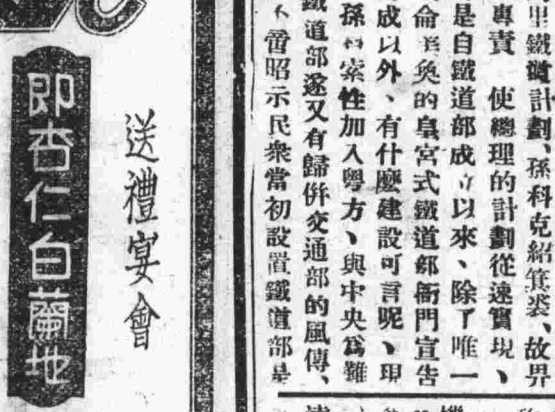 里鐵計劃、孫科克紹箕裘、故畀
專責 使總理的計劃從速實現、
是自鐵道部成立以來、除了唯一
侖美奐的皇宮式鐵道部衙門宣告
成以外、有什麽建設可言呢、現
孫科索性加入粤方、與中央爲難
鐵道部遂又有歸併交通部的風傳、
不啻昭示民衆當初設置鐵道部是
送禮宴會
即杏仁白蘭地